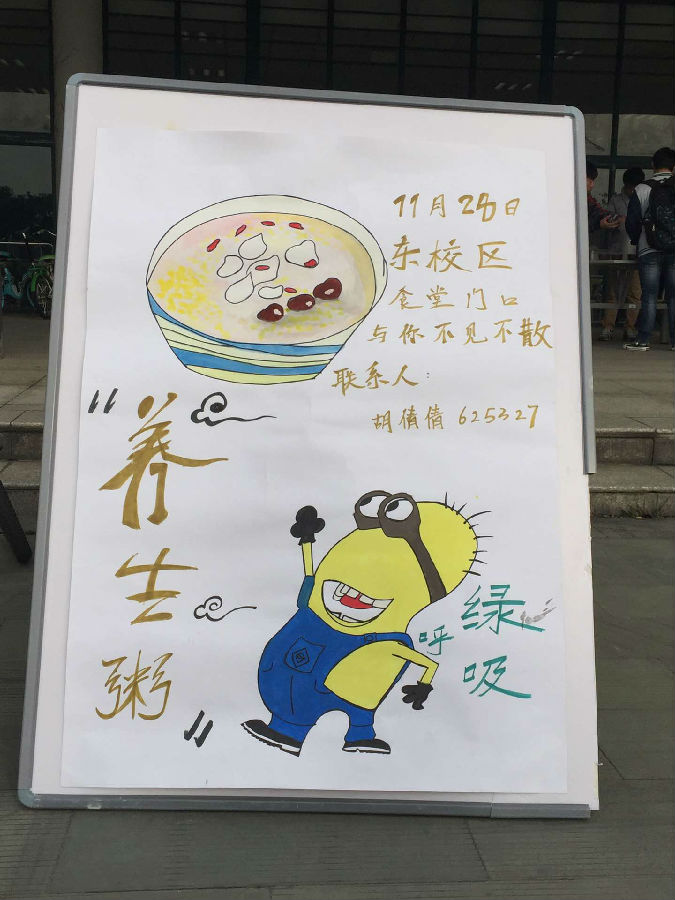 11月28日
东校区
食堂门口
与你不见不散
联系人:
胡倩倩 625327
"养生粥"
绿
呼吸